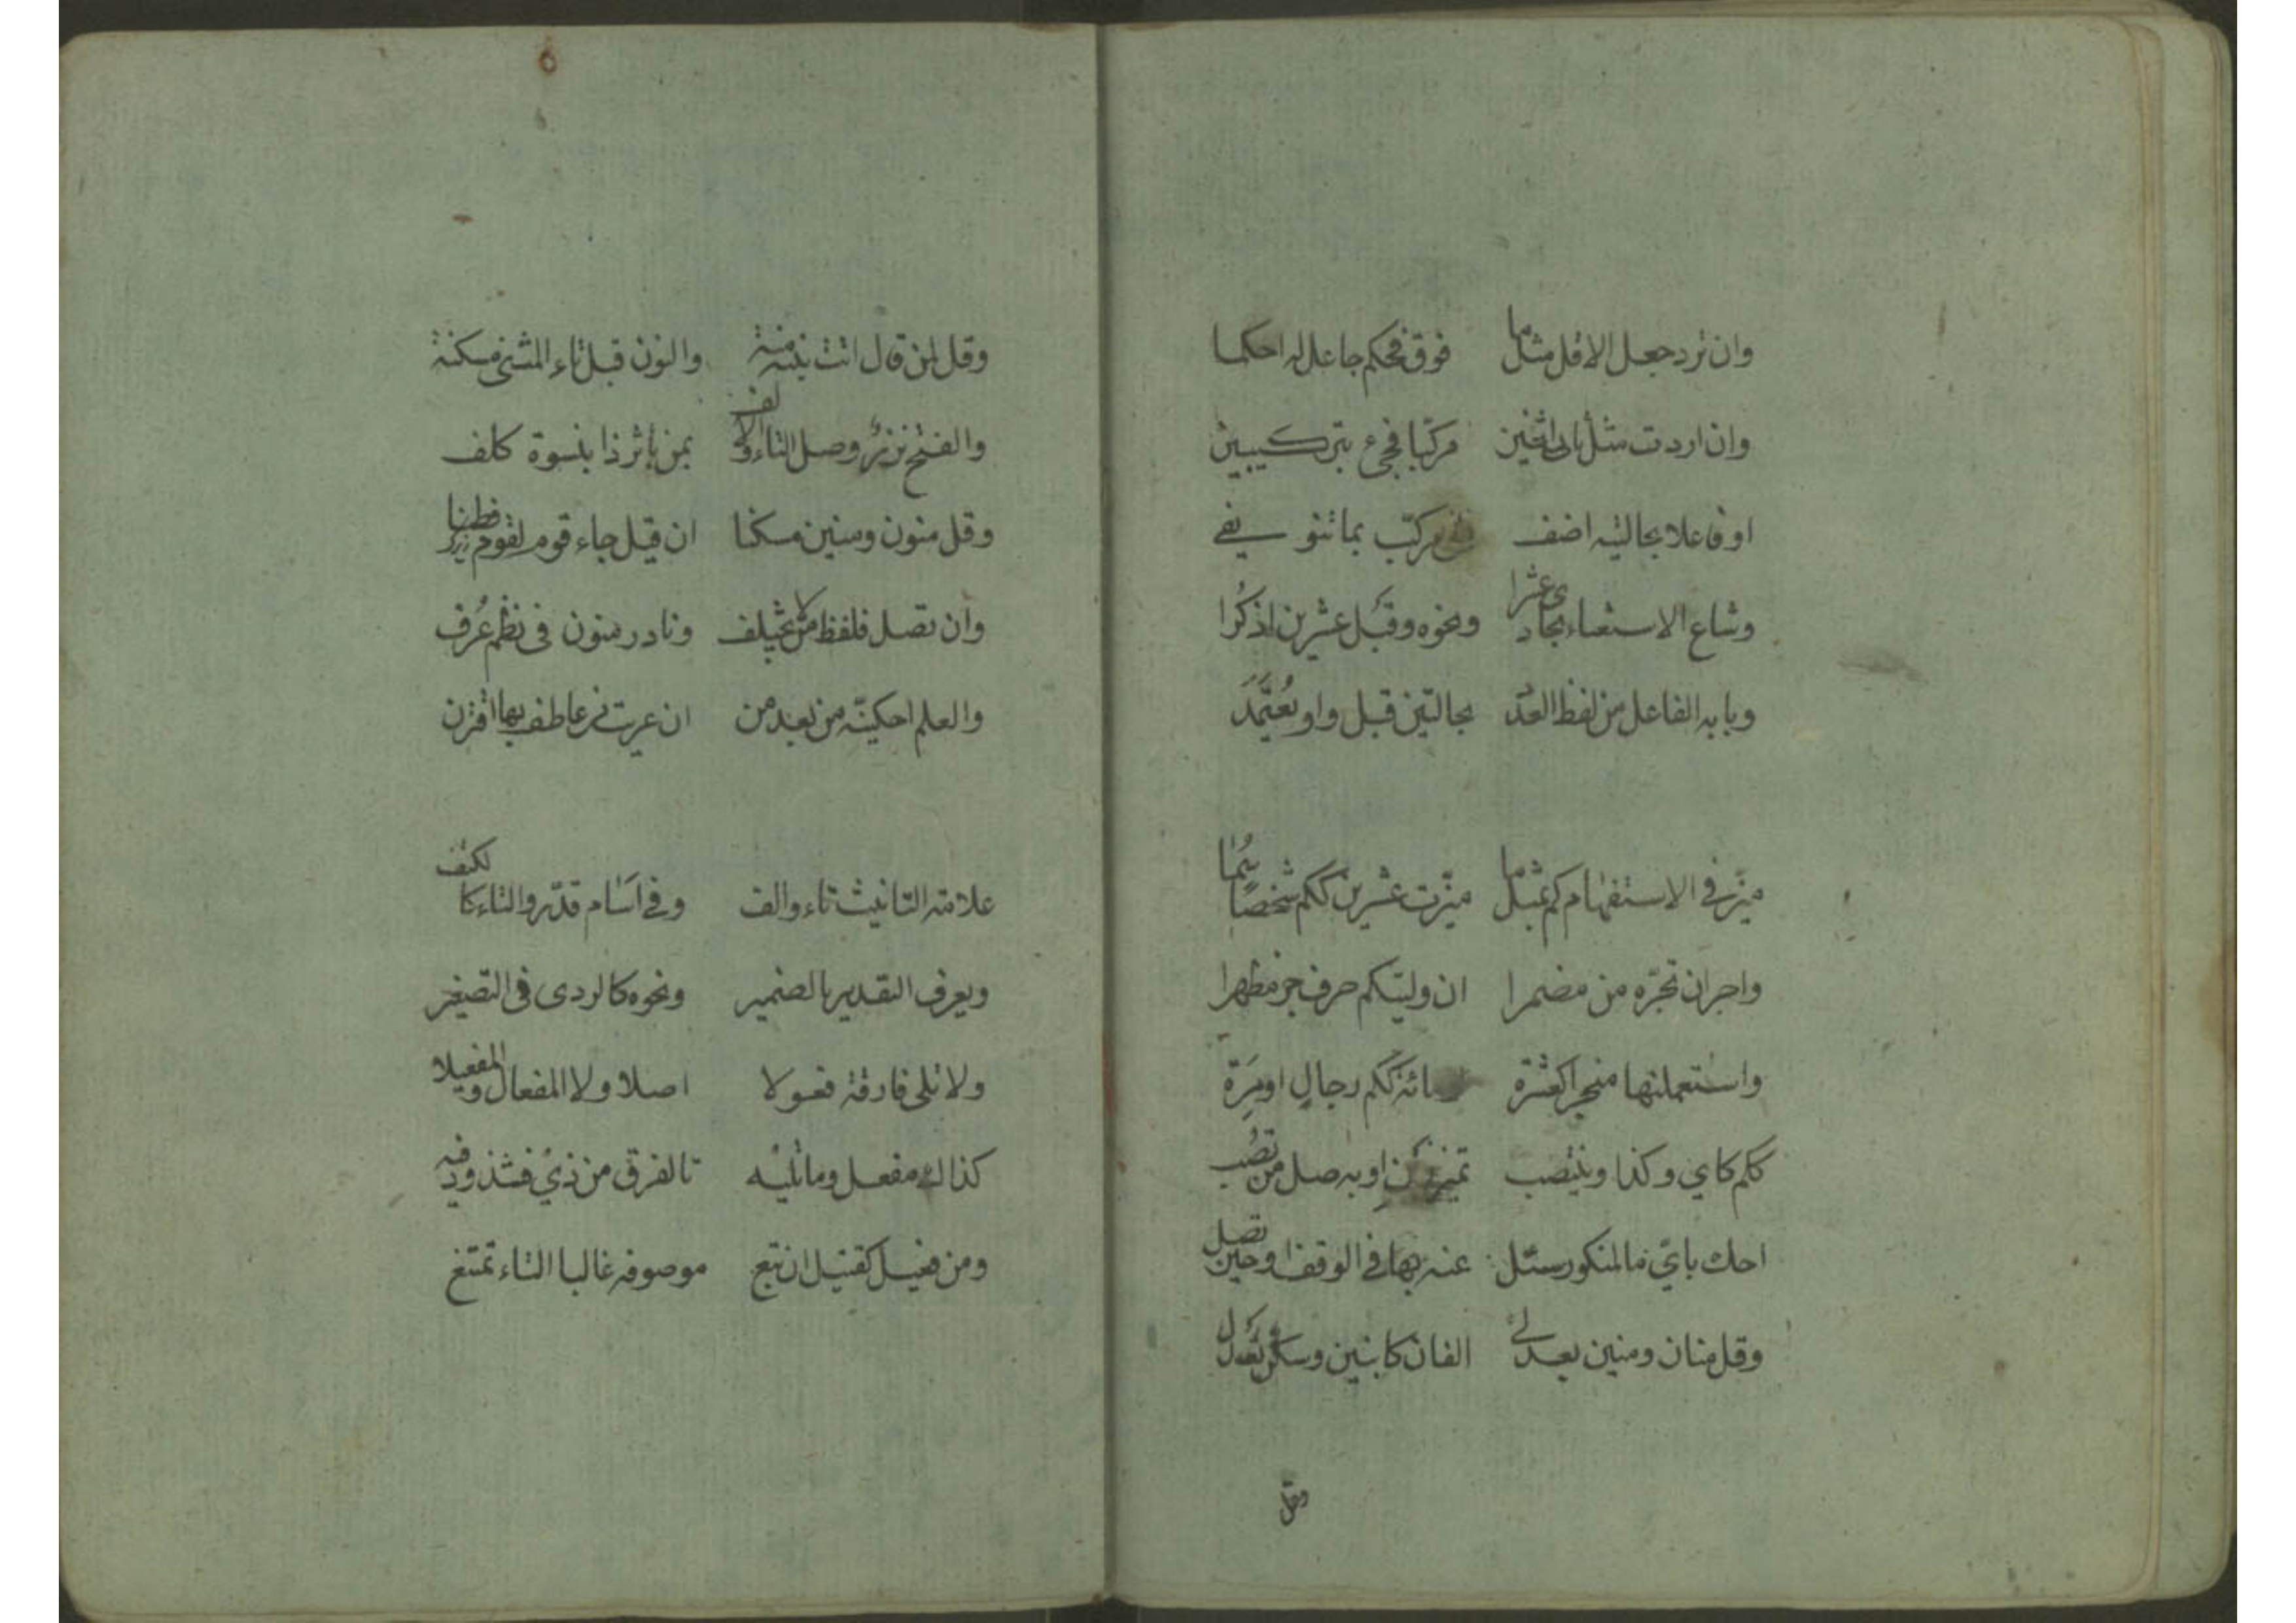 وان ترد جعل الاقل مثل ما فوق فحكم جاعل له احكما
وان اردت مثل ثانى اثنين مركّبا فجئ بتركيبين
او فاعلا بحالتيه اضف مركّب بما تنوى يفى
وشاع الاستغناء بحادى عشرا ونحوه وقبل عشرين اذكُرا
وبابه الفاعل من لفظ العدد بحالتين قبل واو يُعتَمَدَ
ميّز فى الاستفهام كم بمثل ما ميّزت عشرين ككم شخصا سُما
واجز ان تجرّه من مضمرا ان وليت كم حرف جر مظهرا
واستعملنها مخبرا كعشرة مائة ككم رجالٍ او مِرَة
ككم كاي وكذا وينتصب تمييز ذين او به صل من تصب
احك بايّ ما لمنكور سئل عنه بها فى الوقف او حين تصل
وقل منان ومنين بعد لى الفان كابنين وسكّن تعدل
وقل
وقل لمن قال اتت بنت منة والنون قبل تاء المثنى مسكنة
والفتح نزرٌ وصل التاء والالف بمن بأثر ذا بنسوة كلف
وقل منون ومنين مسكنا ان قيل جاء قوم لقوم فطنا
وان تصل فلفظ من لا يختلف ونادر منون فى نظم عُرف
والعلم احكينّه من بعد من ان عريت من عاطف بها اقترن
علامة التّانيث تاء والف وفى اَسَام قدّروا التاء كالكتف
ويعرف التقدير بالضمير ونحوه كالرد فى التصغير
ولا تلى فارقة فعولا اصلا ولا المفعال والمفعيلا
كذاك مفعل وما تليه تا لفرق من ذى فشذوذ فيه
ومن فعيل كقتيل ان تبع موصوفه غالبا التاء تمتنع